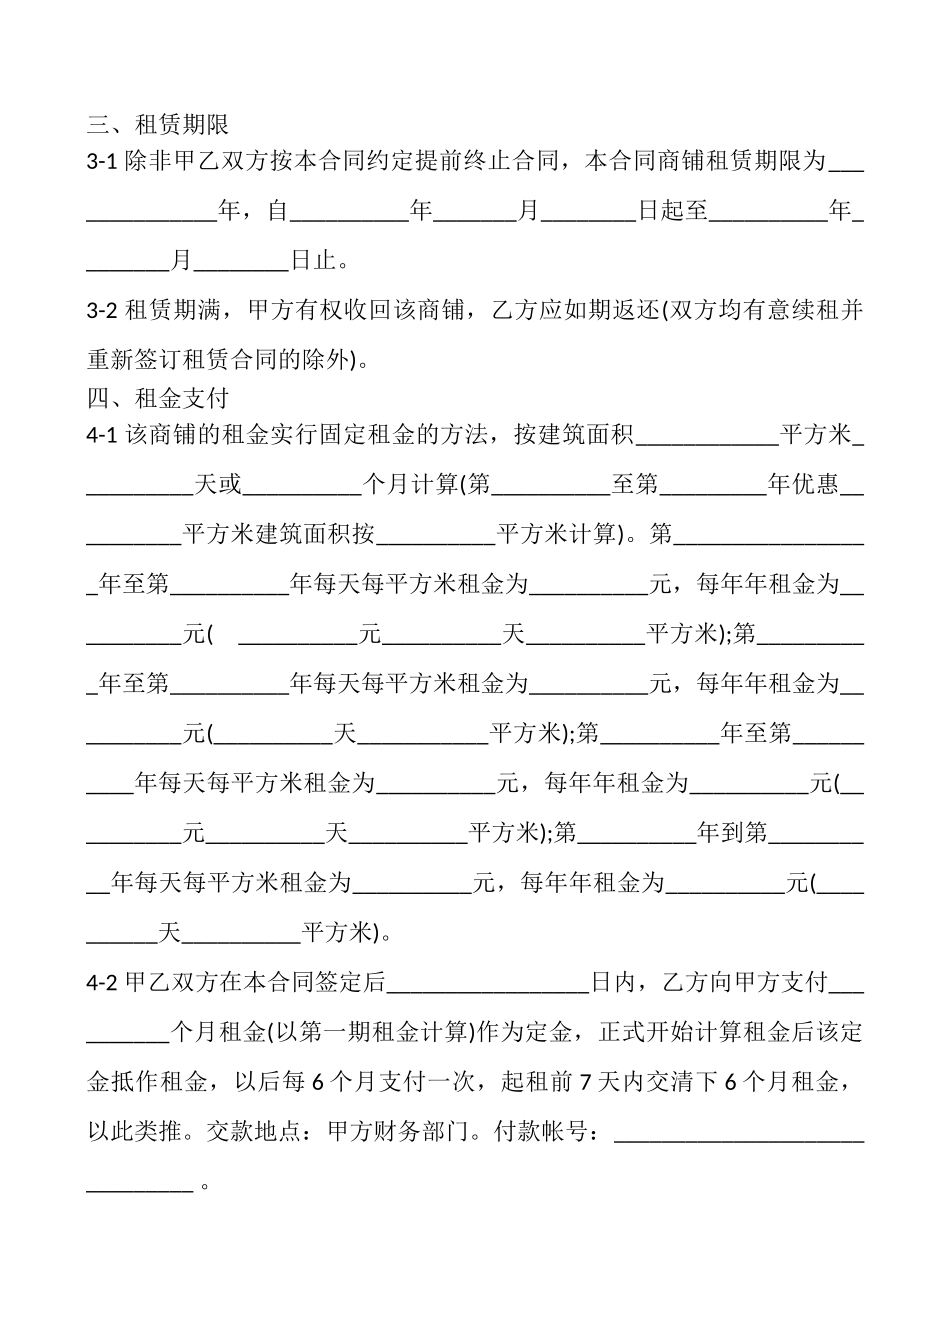 三、租赁期限
3-1 除非甲乙双方按本合同约定提前终止合同，本合同商铺租赁期限为___
___________年，自__________年_______月________日起至__________年_
_______月________日止。
3-2 租赁期满，甲方有权收回该商铺，乙方应如期返还(双方均有意续租并
重新签订租赁合同的除外)。
四、租金支付
4-1 该商铺的租金实行固定租金的方法，按建筑面积____________平方米_
_________天或__________个月计算(第__________至第_________年优惠__
________平方米建筑面积按__________平方米计算)。第________________
_年至第__________年每天每平方米租金为__________元，每年年租金为__
________元(  __________元__________天__________平方米);第_________
_年至第__________年每天每平方米租金为__________元，每年年租金为__
________元(__________天___________平方米);第__________年至第______
____年每天每平方米租金为__________元，每年年租金为__________元(__
________元__________天__________平方米);第__________年到第________
__年每天每平方米租金为__________元，每年年租金为__________元(____
______天__________平方米)。
4-2 甲乙双方在本合同签定后_________________日内，乙方向甲方支付___
_______个月租金(以第一期租金计算)作为定金，正式开始计算租金后该定
金抵作租金，以后每 6 个月支付一次，起租前 7 天内交清下 6 个月租金，
以此类推。交款地点：甲方财务部门。付款帐号：_____________________
_________ 。